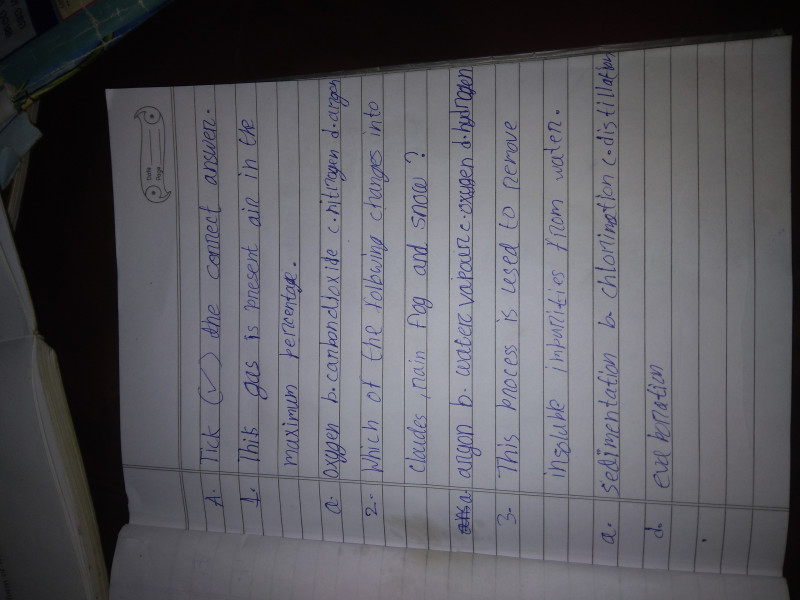 Date
Page
A. Tick (✓) the correct answer.
1. This gas is present air in the
maximum percentage.
a. oxygen b. carbondioxide c. nitrogen d. argon
2. Which of the following changes into
cloudes, rain fog and snow?
a. argon b. water vapour c. oxygen d. hydrogen
3. This process is used to remove
insoluble impurities from water.
a. sedimentation b. chlorination c. distillation
d. evaporation